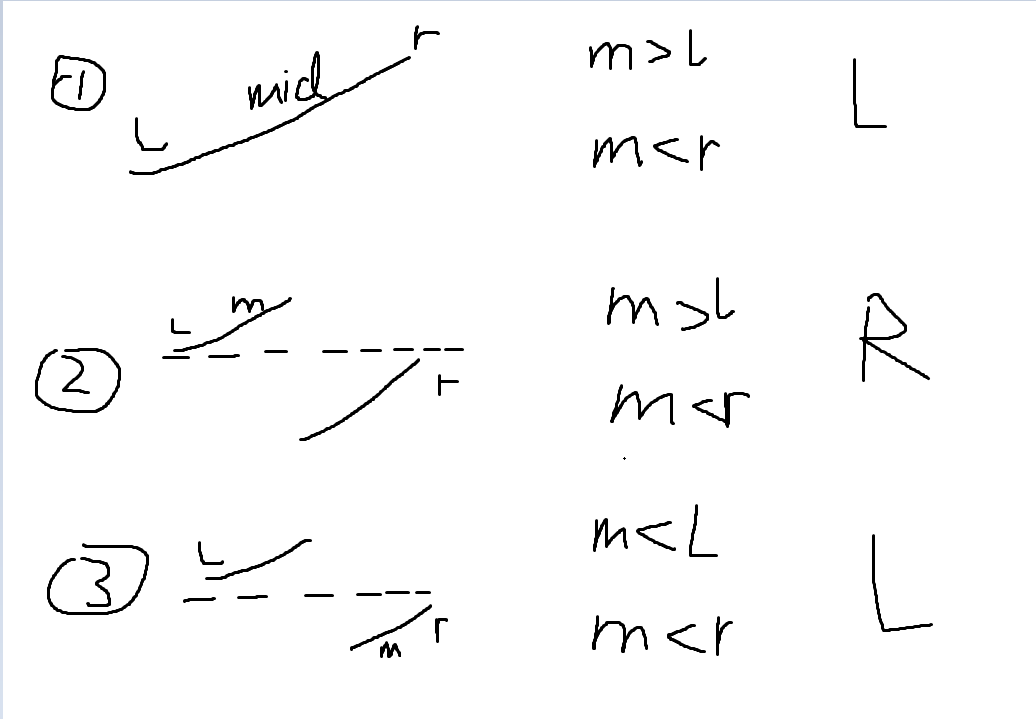 1
L mid r
m>L
m<r
L
2
L m
r
m>L
m<r
R
3
L
m r
m<L
m<r
L